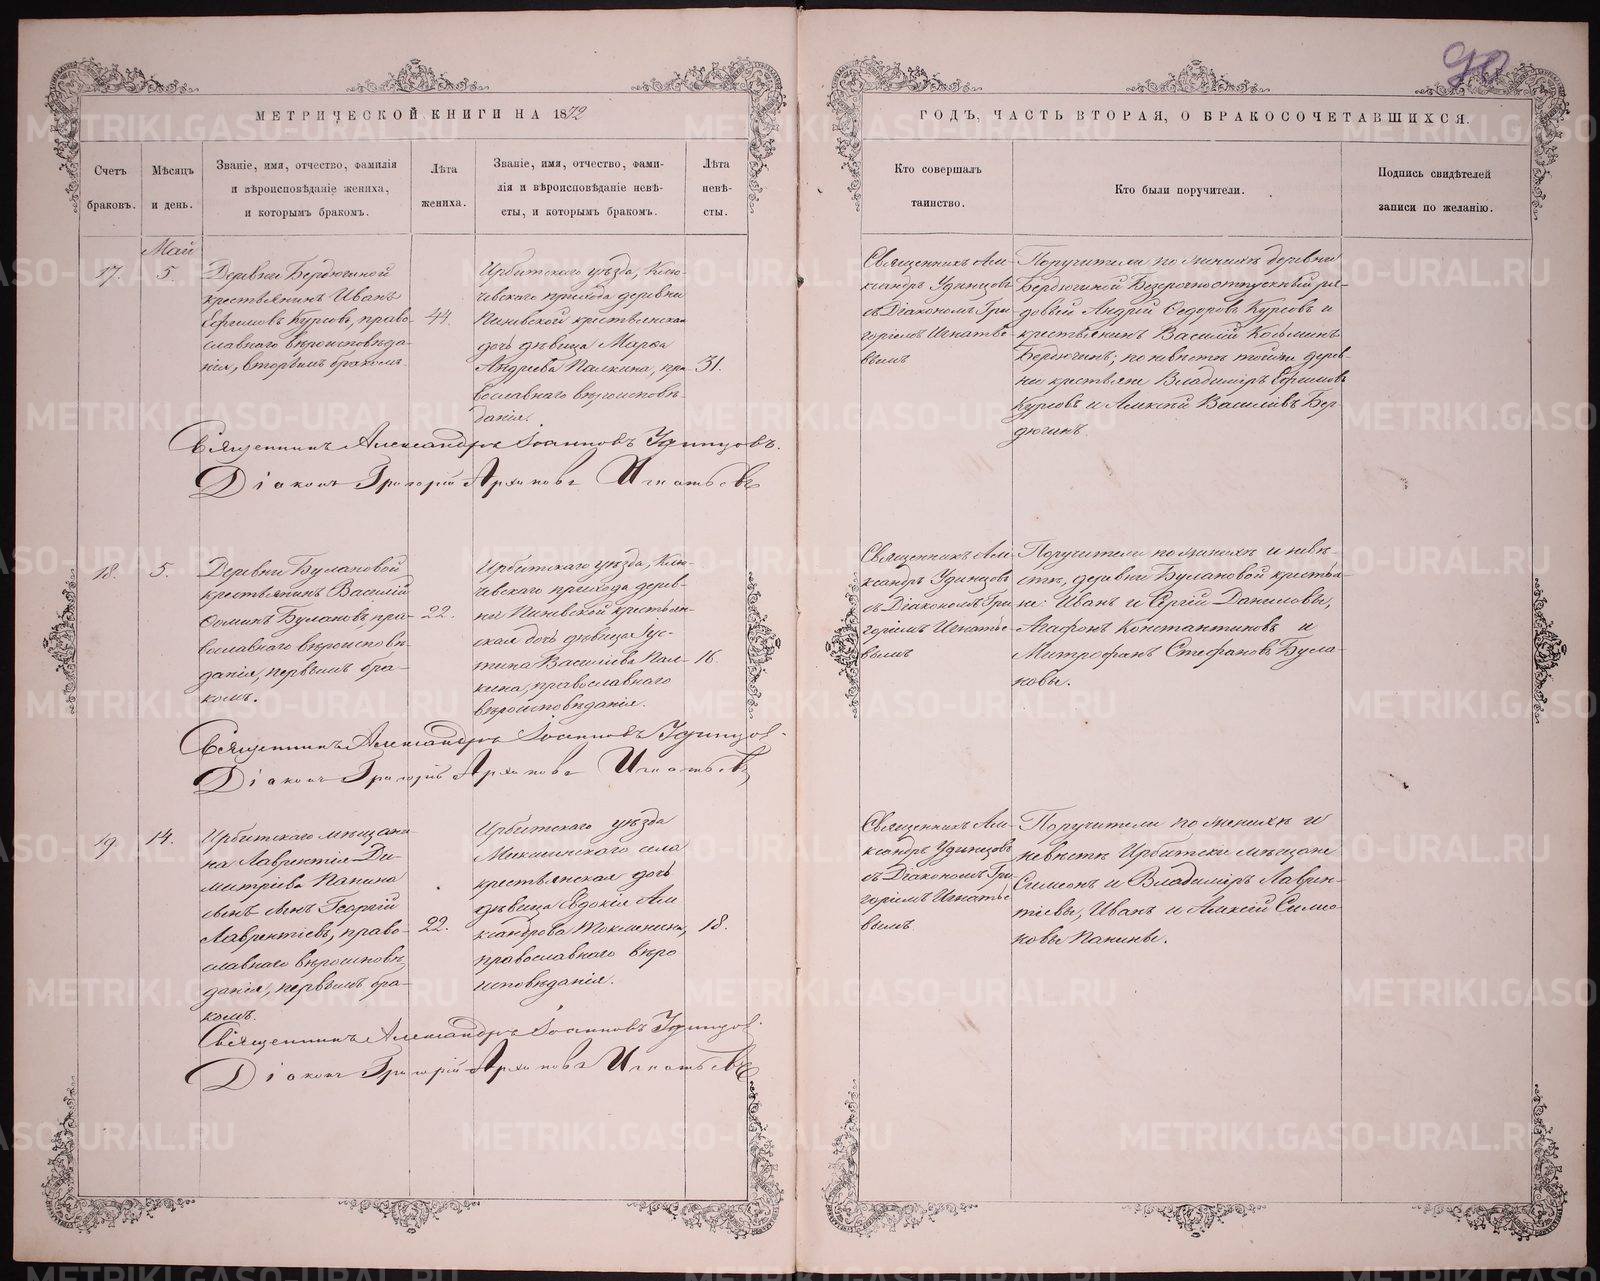 90
МЕТРИЧЕСКОЙ КНИГИ НА 1872
ГОДЪ, ЧАСТЬ ВТОРАЯ, О БРАКОСОЧЕТАВШИХСЯ.
Счетъ
браковъ.
Мѣсяцъ
и день.
Званіе, имя, отчество, фамилія
и вѣроисповѣданіе жениха,
и которымъ бракомъ.
Лѣта
жениха.
Званіе, имя, отчество, фами-
лія и вѣроисповѣданіе невѣ-
сты, и которымъ бракомъ.
Лѣта
невѣ-
сты.
Кто совершалъ
таинство.
Кто были поручители.
Подпись свидѣтелей
записи по желанію.
17.
Май
5
Деревни Бердюгиной
крестьянинъ Иванъ
Ефимовъ Курсовъ, право-
славнаго вѣроисповѣда-
нія, вторымъ бракомъ.
44.
Ирбитскаго уѣзда, Клю-
чевскаго прихода деревни
крестьянская
дочь дѣвица Марѳа
Андреева Палкина, пра
вославнаго вѣроисповѣ-
данія.
31.
Священникъ Але-
ксандръ Удинцовъ
съ Діакономъ Гри-
горіемъ Игнатье-
вымъ
Поручители по женихѣ деревни
Бердюгиной Безсрочноотпускный ря-
довый Андрей Ѳедоровъ Курсовъ и
крестьянинъ Василій Козьминъ
Бердюгинъ; по невѣстѣ тойже дерев-
ни крестьяне Владиміръ Ефимовъ
Курсовъ и Алексѣй Васильевъ Бер-
дюгинъ.
Священникъ Александръ Іоанновъ Удинцовъ.
Діаконъ Григорій Архиповъ Игнатьевъ
18.
5.
Деревни Булановой
крестьянинъ Василій
Ѳоминъ Булановъ, пра-
вославнаго вѣроисповѣ-
данія, первымъ бра-
комъ.
22.
Ирбитскаго уѣзда, Клю-
чевскаго прихода дерев-
ни крестьян-
ская дочь дѣвица Іус-
тина Васильева Пал-
кина, православнаго
вѣроисповѣданія.
16.
Священникъ Але-
ксандръ Удинцовъ
съ Діакономъ Гри
горіемъ Игнатье-
вымъ
Поручители по женихѣ и невѣ-
стѣ, деревни Булановой крестья-
не: Иванъ и Сергій Даниловы,
Агафонъ Константиновъ и
Митрофанъ Стефановъ Була-
новы.
Священникъ Александръ Іоанновъ Удинцов.
Діаконъ Григорій Архиповъ Игнатьевъ
19
14.
Ирбитскаго мѣщани
на Лаврентія Ди-
митріева Панина
сынъ Георгій
Лаврентіевъ, право-
славнаго вѣроисповѣ
данія, первымъ бра-
комъ.
22.
Ирбитскаго уѣзда
села
крестьянская дочь
дѣвица Евдокія Але
ксандрова
православнаго вѣро
исповѣданія.
18.
Священникъ Але-
ксандръ Удинцовъ
съ Діакономъ Гри
горіемъ Игнатье
вымъ
Поручители по женихѣ и
невѣстѣ Ирбитскіе мѣщане
Симеонъ и Владиміръ Лаврен-
тіевы, Иванъ и Алексѣй Симео
новы Панины.
Священникъ Александръ Іоанновъ Удинцов.
Діаконъ Григорій Архиповъ Игнатьевъ
METRIKI.GASO-URAL.RU